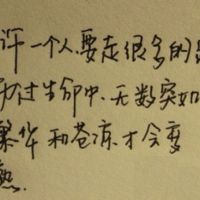 许一个人要走很多的路
过生命中无数突如
繁华和苍凉才会变
熟